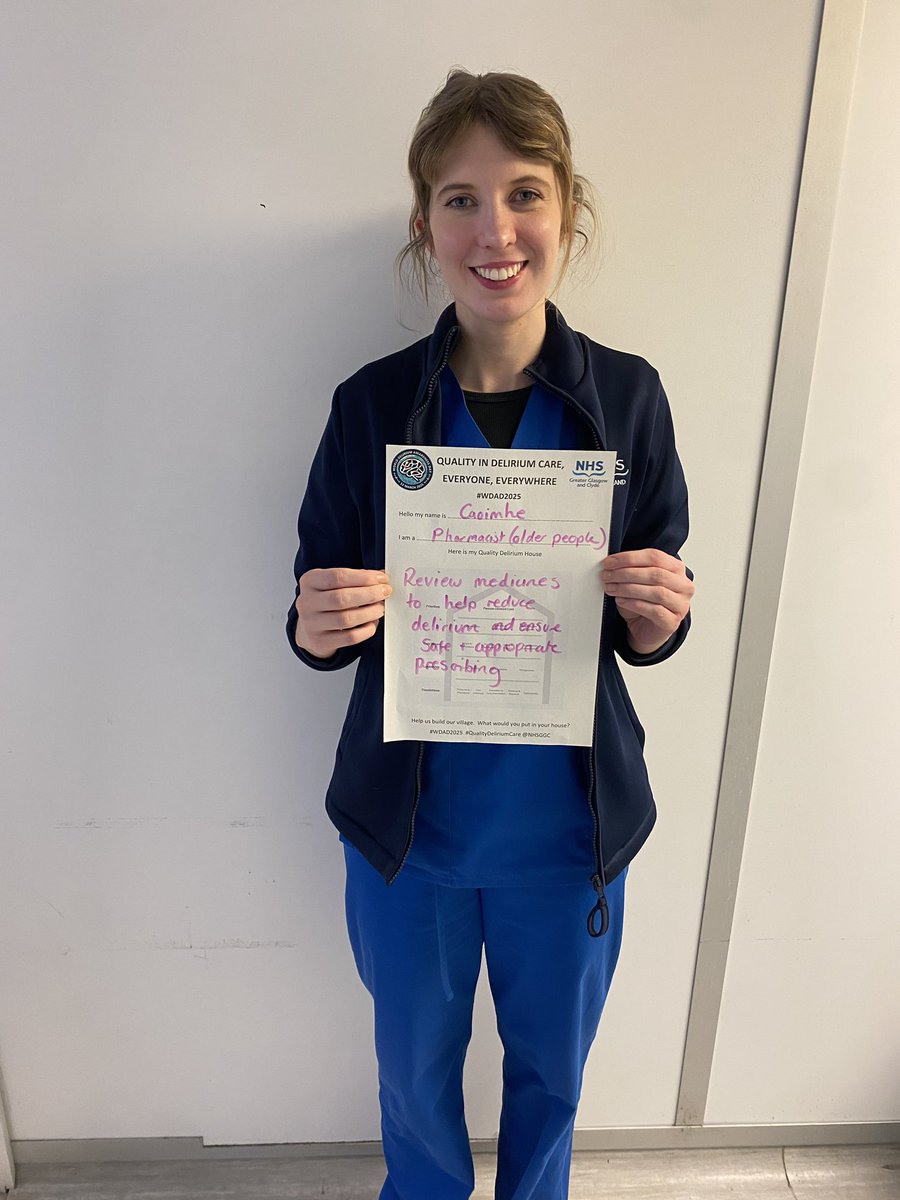 QUALITY IN DELIRIUM CARE,
EVERYONE, EVERYWHERE
#WDAD2025
NHS
Greater Glasgow
and Clyde
NHS
Hello my name is Caoimhe
I am a Pharmacist (older people)
Here is my Quality Delirium House
Review medicines
to help reduce
delirium and ensure
Safe + appropriate
prescribing
Foundations
Help us build our village. What would you put in your house?
#WDAD2025 #QualityDeliriumCare @NHSGGC